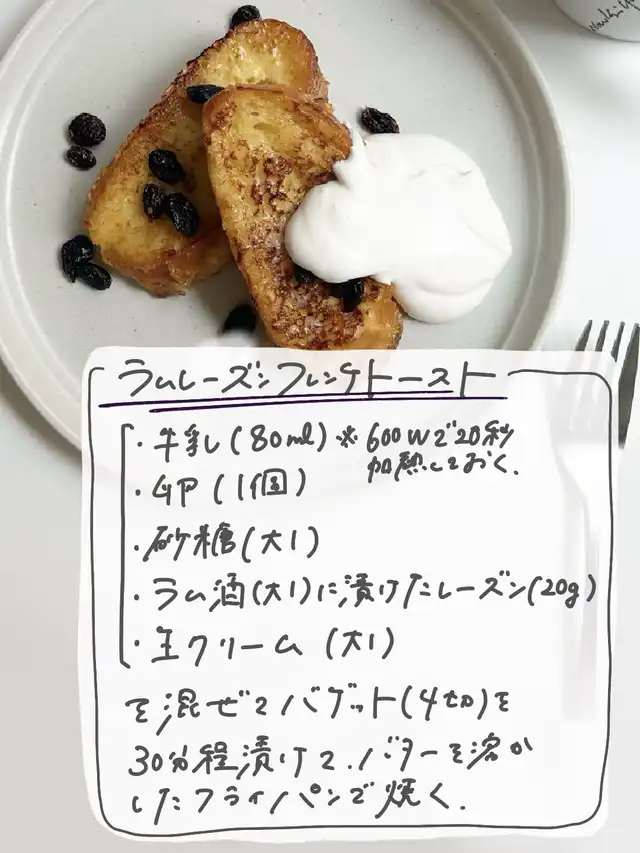 ラムレーズンフレンチトースト
・牛乳(80ml)※600Wで20秒
加熱しておく.
・卵(1個)
・砂糖(大1)
・ラム酒(大1)に漬けたレーズン(20g)
・生クリーム(大1)
を混ぜてバゲット(4切)を
30分程漬けて.バターを溶か
したフライパンで焼く.